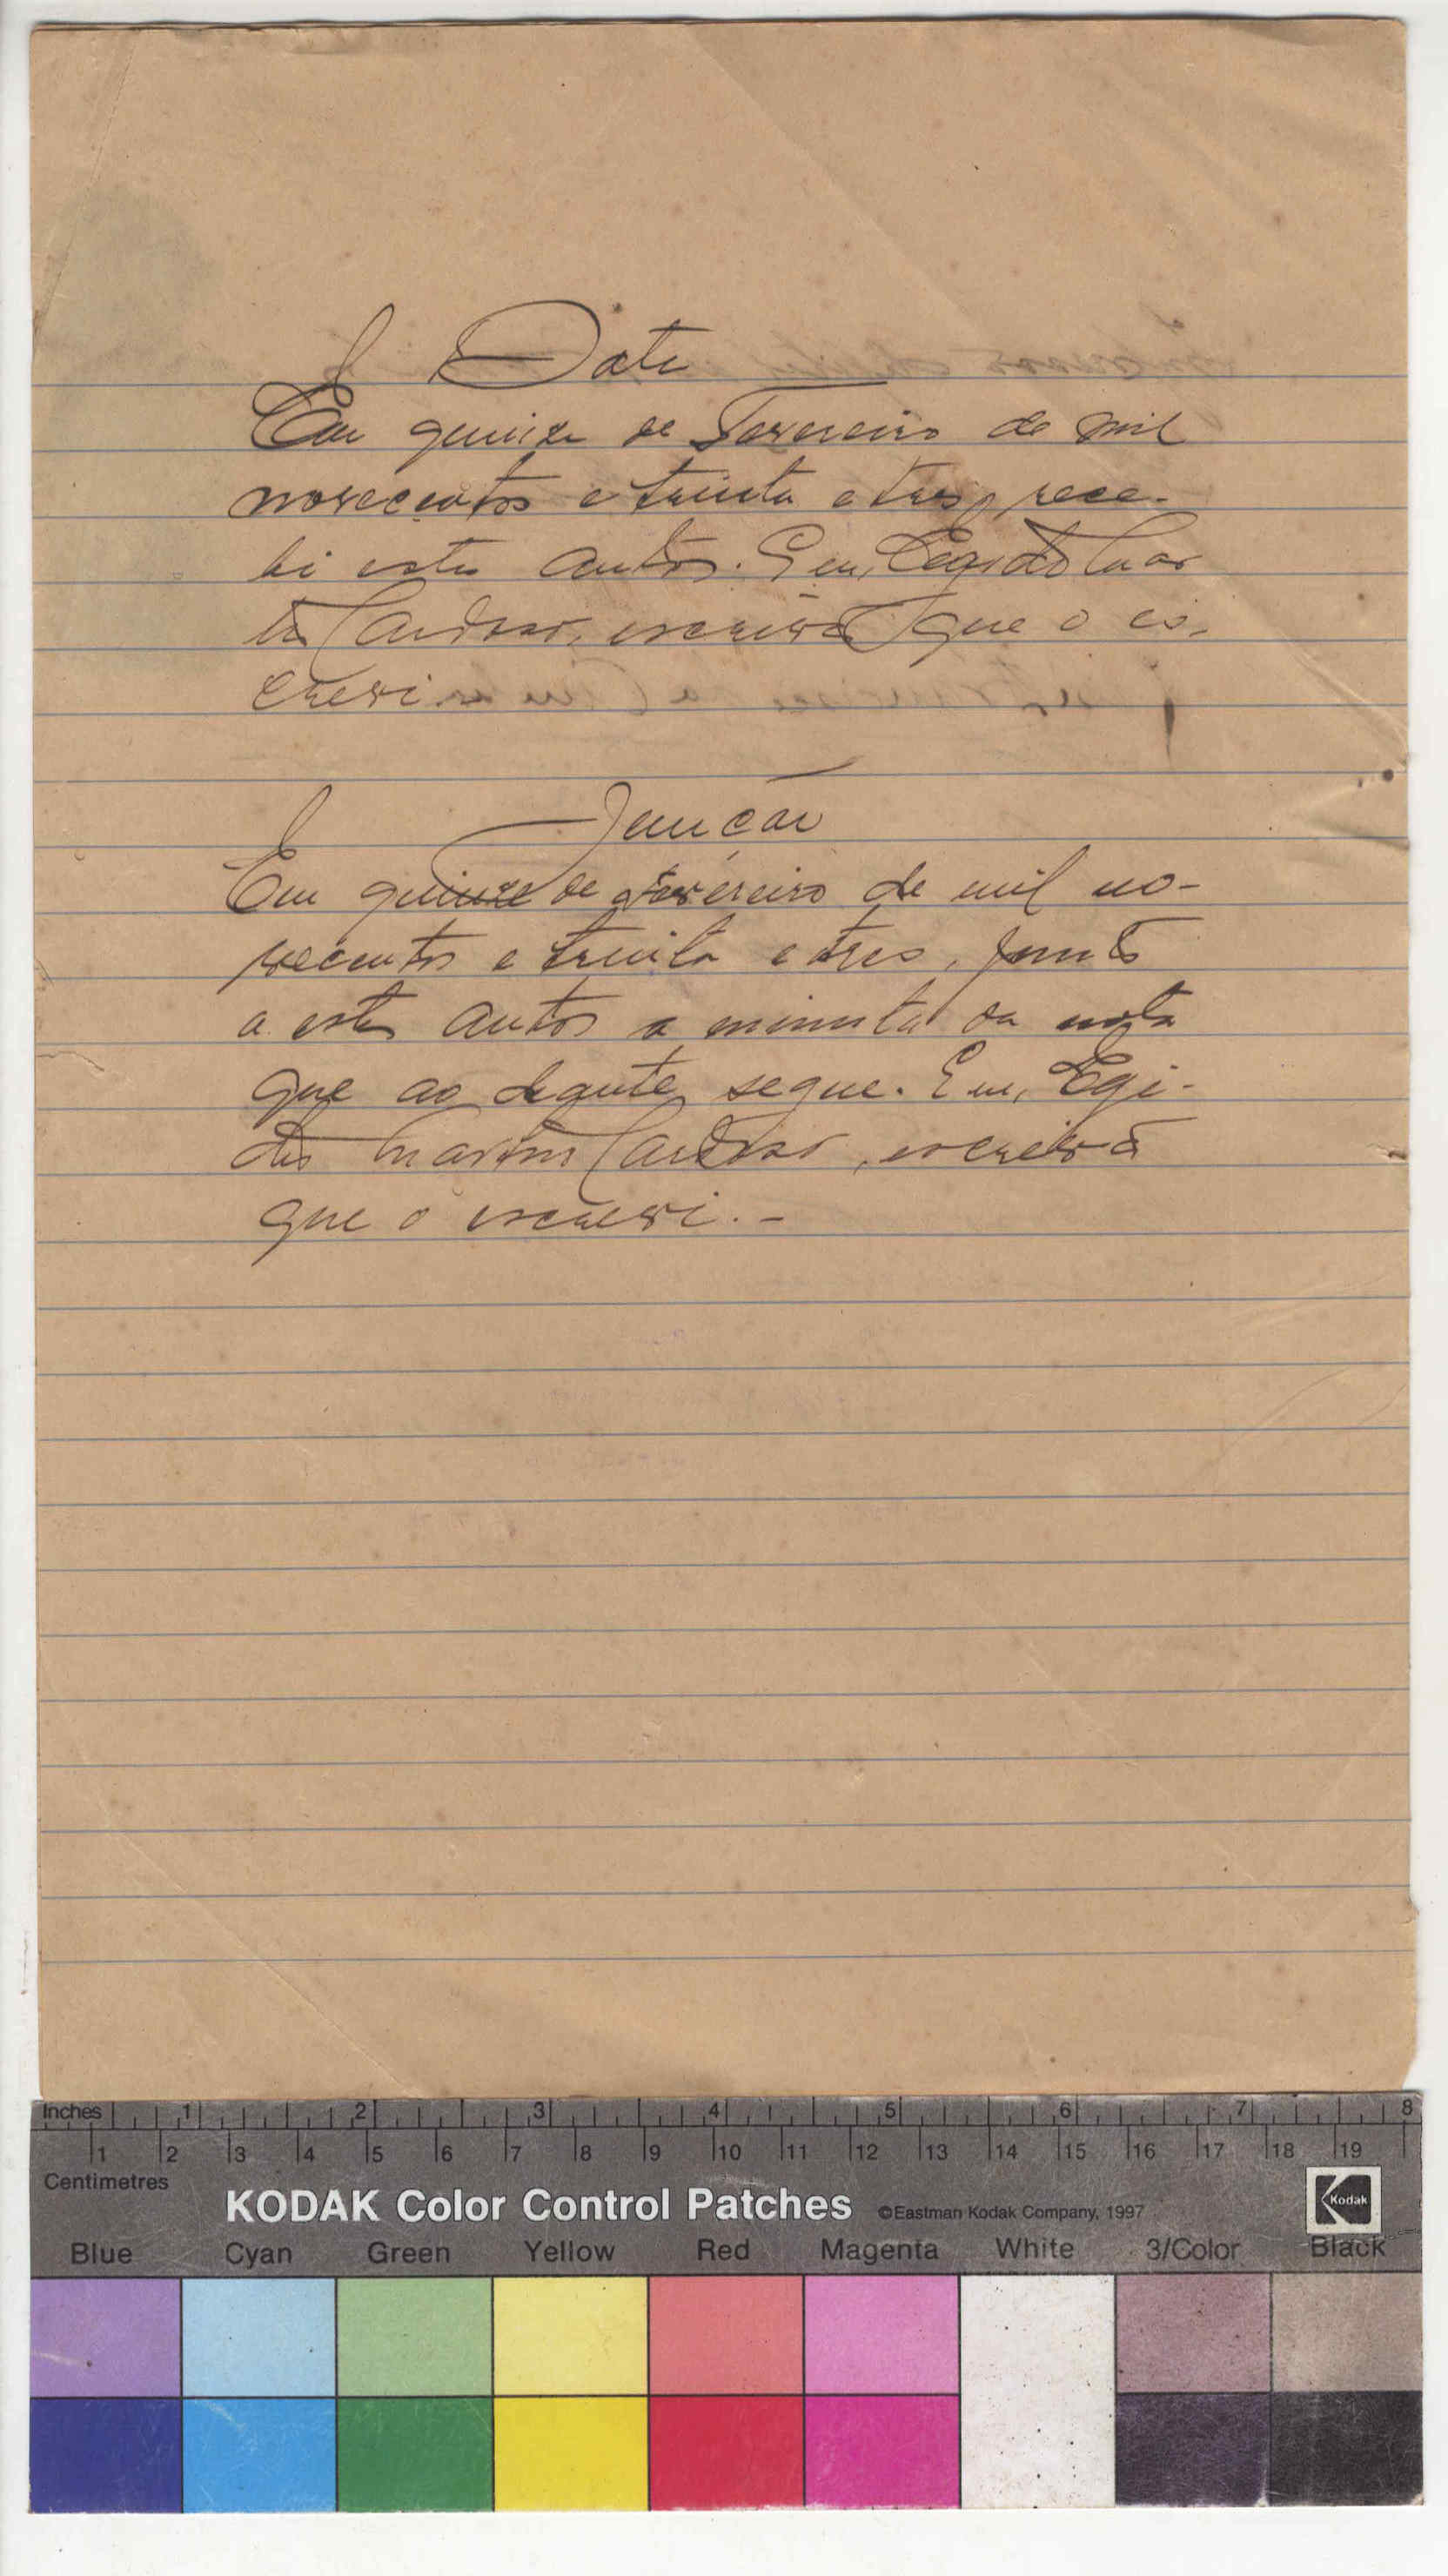 Data
Em quinze de Fevereiro de mil
novecentos e trinta e tres, rece-
bi estes autos. Eu, Egidio Mar
tins Cardoso, escrivão que o es-
crevi.
Juncão
Em quinze de Fevereiro de mil no-
vecentos e trinta e tres, junto
a estes autos a minuta da nota
que ao deante segue. Eu, Egi-
dio Martins Cardoso, escrivão
que o escrevi. -
Inches 1 2 3 4 5 6 7 8
1 2 3 4 5 6 7 8 9 10 11 12 13 14 15 16 17 18 19
Centimetres
KODAK Color Control Patches ©Eastman Kodak Company, 1997 Kodak
Blue Cyan Green Yellow Red Magenta White 3/Color Black